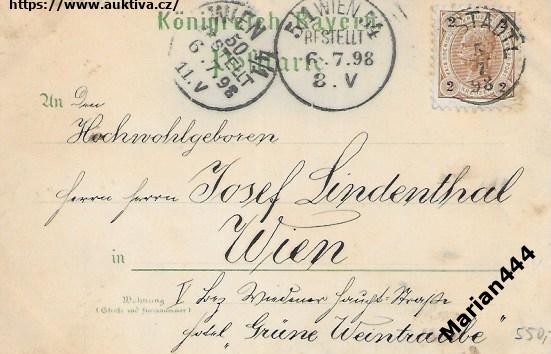 https://www.auktiva.cz/
Königreich Bayern
Postkarte
WIEN
50
BESTELLT
6. 7. 98
11.V
5/1 WIEN 54
BESTELLT
6.7.98
8.V
2
2 2
5
7
98
An Den
Hochwohlgeboren
Herrn Herrn Josef Lindenthal
in Wien
Wohnung
(Straße und Hausnummer)
V Bez Wiedener Haupt-Straße
Hotel "Grüne Weintraube"
Marian444
550,-